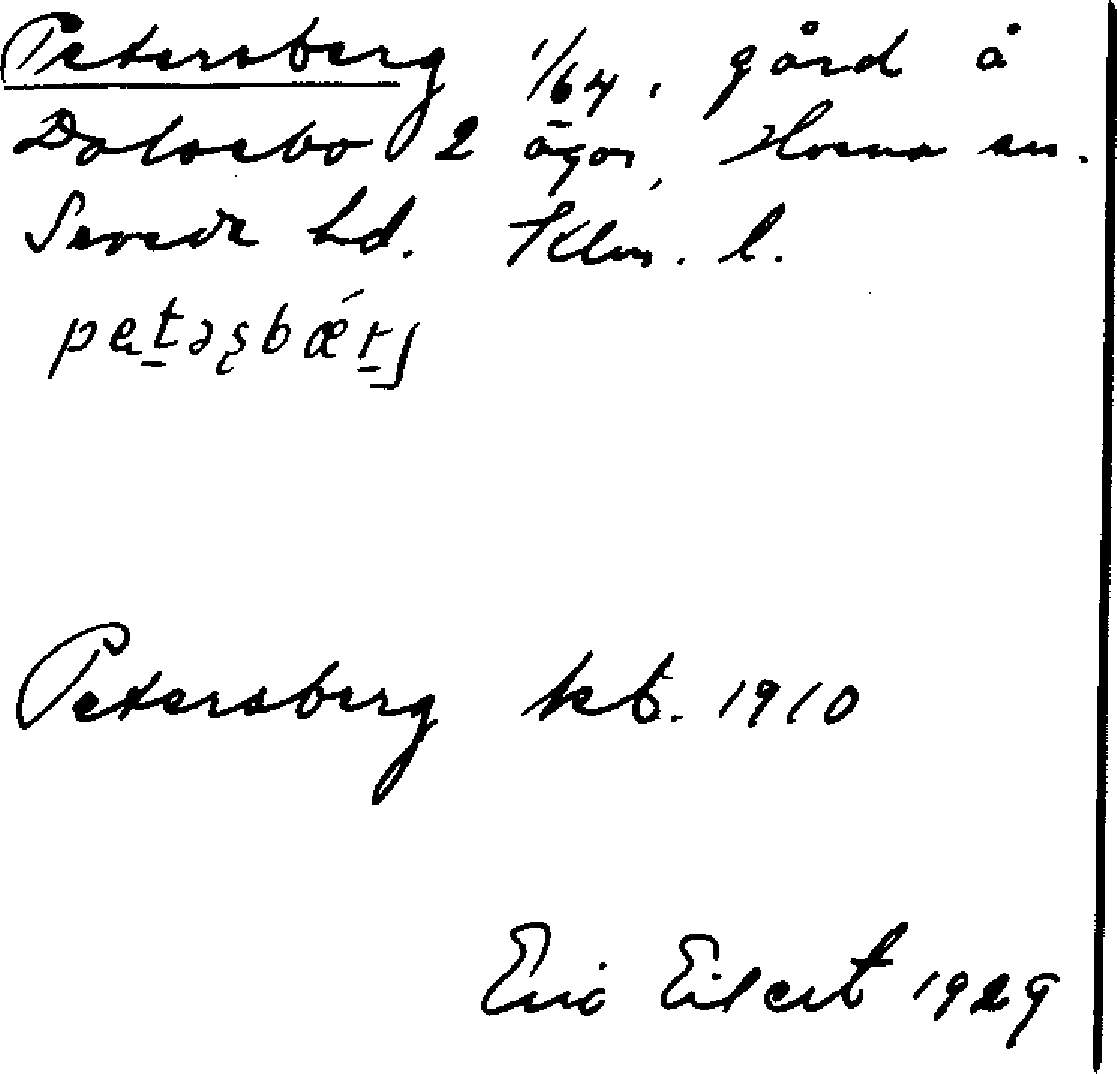 Petersberg 1/64, gård å
2 ägor, sn.
Sevede hd. Klm. l.
petəʂbǽrj
Petersberg kb. 1910
Eric Eilert 1929